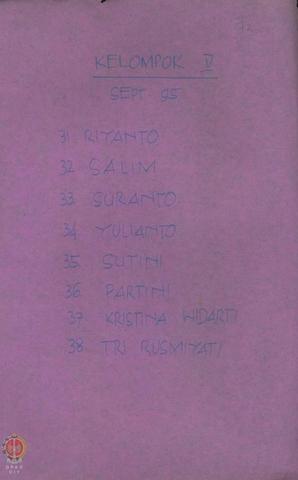 72
KELOMPOK V
SEPT. 95
31. RIYANTO
32. SALIM
33. SURANTO
34. YULIANTO
35. SUTINI
36. PARTINI
37. KRISTINA WIDARTI
38. TRI RUSMIYATI
BPAD
DIY